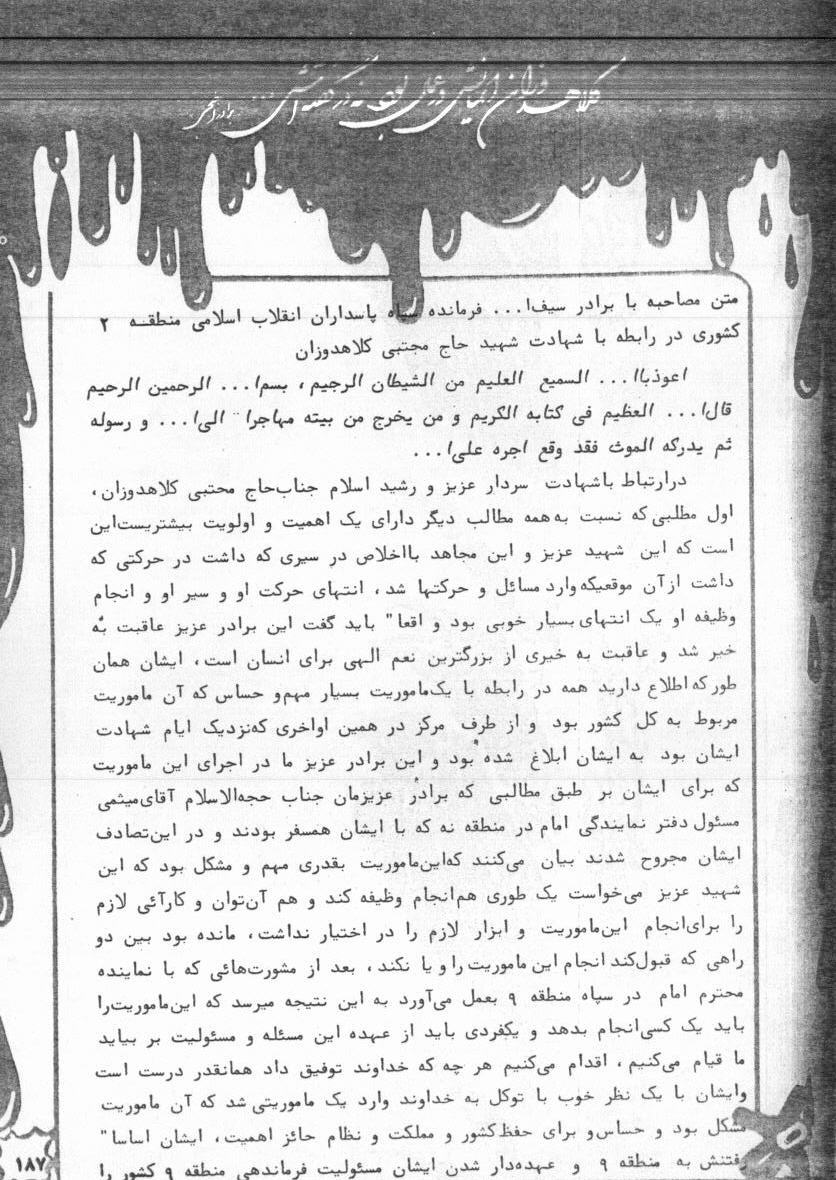 کلاهدوزان ایمانش در عمل بود نه در گفته‌اش
متن مصاحبه با برادر سیف‌ا... فرمانده سپاه پاسداران انقلاب اسلامی منطقـه ۲
کشوری در رابطه با شهادت شهید حاج مجتبی کلاهدوزان
اعوذباا... السمیع العلیم من الشیطان الرجیم ، بسم‌ا... الرحمین الرحیم
قال‌ا... العظیم فی کتابه الکریم و من یخرج من بیته مهاجرا" الی‌ا... و رسوله
ثم یدرکه الموث فقد وقع اجره علی‌ا...
درارتباط باشهادت سردار عزیز و رشید اسلام جناب‌حاج محتبی کلاهدوزان،
اول مطلبی‌که نسبت به‌همه مطالب دیگر دارای یک اهمیت و اولویت بیشتریست‌این
است که این شهید عزیز و این مجاهد بااخلاص در سیری که داشت در حرکتی که
داشت ازآن موقعیکه‌وارد مسائل و حرکتها شد، انتهای حرکت او و سیر او و انجام
وظیفه او یک انتهای‌بسیار خوبی بود و اقعا" باید گفت این برادر عزیز عاقبت به
خیر شد و عاقبت به خیری از بزرگترین نعم الهی برای انسان است، ایشان همان
طورکه‌اطلاع دارید همه در رابطه با یک‌ماموریت بسیار مهم‌و حساس که آن ماموریت
مربوط به کل کشور بود و از طرف مرکز در همین اواخری که‌نزدیک ایام شهادت
ایشان بود به ایشان ابلاغ شده بود و این برادر عزیز ما در اجرای این ماموریت
که برای ایشان بر طبق مطالبی که برادر عزیزمان جناب حجه‌الاسلام آقای‌میثمی
مسئول دفتر نمایندگی امام در منطقه نه که با ایشان همسفر بودند و در این‌تصادف
ایشان مجروح شدند بیان می‌کنند که‌این‌ماموریت بقدری مهم و مشکل بود که این
شهید عزیز می‌خواست یک طوری هم‌انجام وظیفه کند و هم آن‌توان و کارآئی لازم
را برای‌انجام این‌ماموریت و ابزار لازم را در اختیار نداشت، مانده بود بین دو
راهی که قبول‌کند انجام این ماموریت‌را و یا نکند، بعد از مشورت‌هائی که با نماینده
محترم امام در سپاه منطقه ۹ بعمل می‌آورد به این نتیجه میرسد که این‌ماموریت‌را
باید یک کسی‌انجام بدهد و یکفردی باید از عهده این مسئله و مسئولیت بر بیاید
ما قیام می‌کنیم، اقدام می‌کنیم هر چه که خداوند توفیق داد همانقدر درست است
وایشان با یک نظر خوب با توکل به خداوند وارد یک ماموریتی شد که آن ماموریت
مشکل بود و حساس‌و برای حفظ‌کشور و مملکت و نظام حائز اهمیت، ایشان اساسا"
رفتنش به منطقه ۹ و عهده‌دار شدن ایشان مسئولیت فرماندهی منطقه ۹ کشور را
۱۸۷